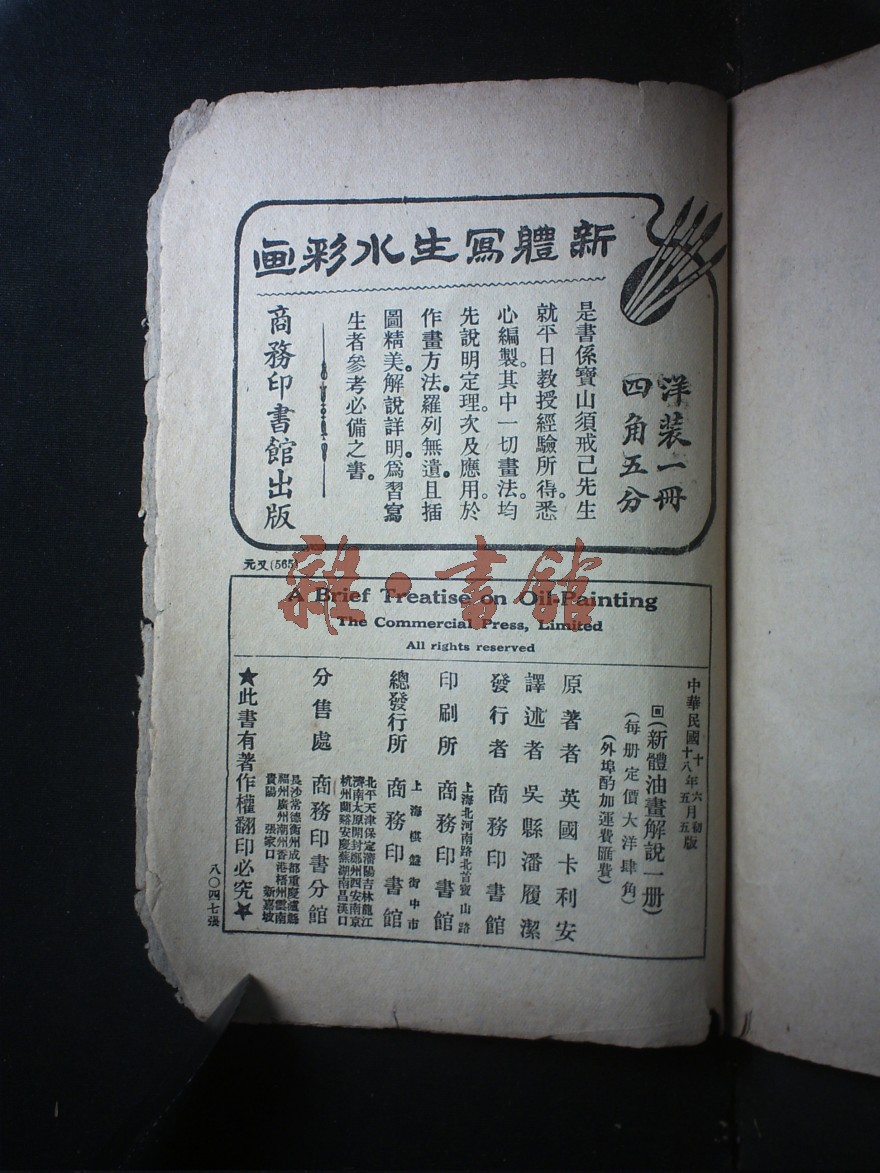 新體寫生水彩画
洋装一冊
四角五分
是書係寶山須戒己先生
就平日教授經驗所得。悉
心編製。其中一切畫法。均
先說明定理。次及應用。於
作畫方法。羅列無遺。且插
圖精美。解說詳明。爲習寫
生者參考必備之書。
商務印書館出版
元又(565)
雜·書館
A Brief Treatise on Oil-Painting
The Commercial Press, Limited
All rights reserved
中華民國十年六月初版
十八年五月五版
(新體油畫解說一册)
(每册定價大洋肆角)
(外埠酌加運費匯費)
原著者 英國卡利安
譯述者 吳縣潘履潔
發行者 商務印書館
印刷所 上海北河南路北首寶山路 商務印書館
總發行所 上海棋盤街中市 商務印書館
分售處 商務印書分館
北平天津保定瀋陽吉林龍江
濟南太原開封鄭州西安南京
杭州蘭谿安慶蕪湖南昌漢口
長沙常德衡州成都重慶瀘縣
福州廣州潮州香港梧州雲南
貴陽 張家口 新嘉坡
★此書有著作權翻印必究★
八〇四七張